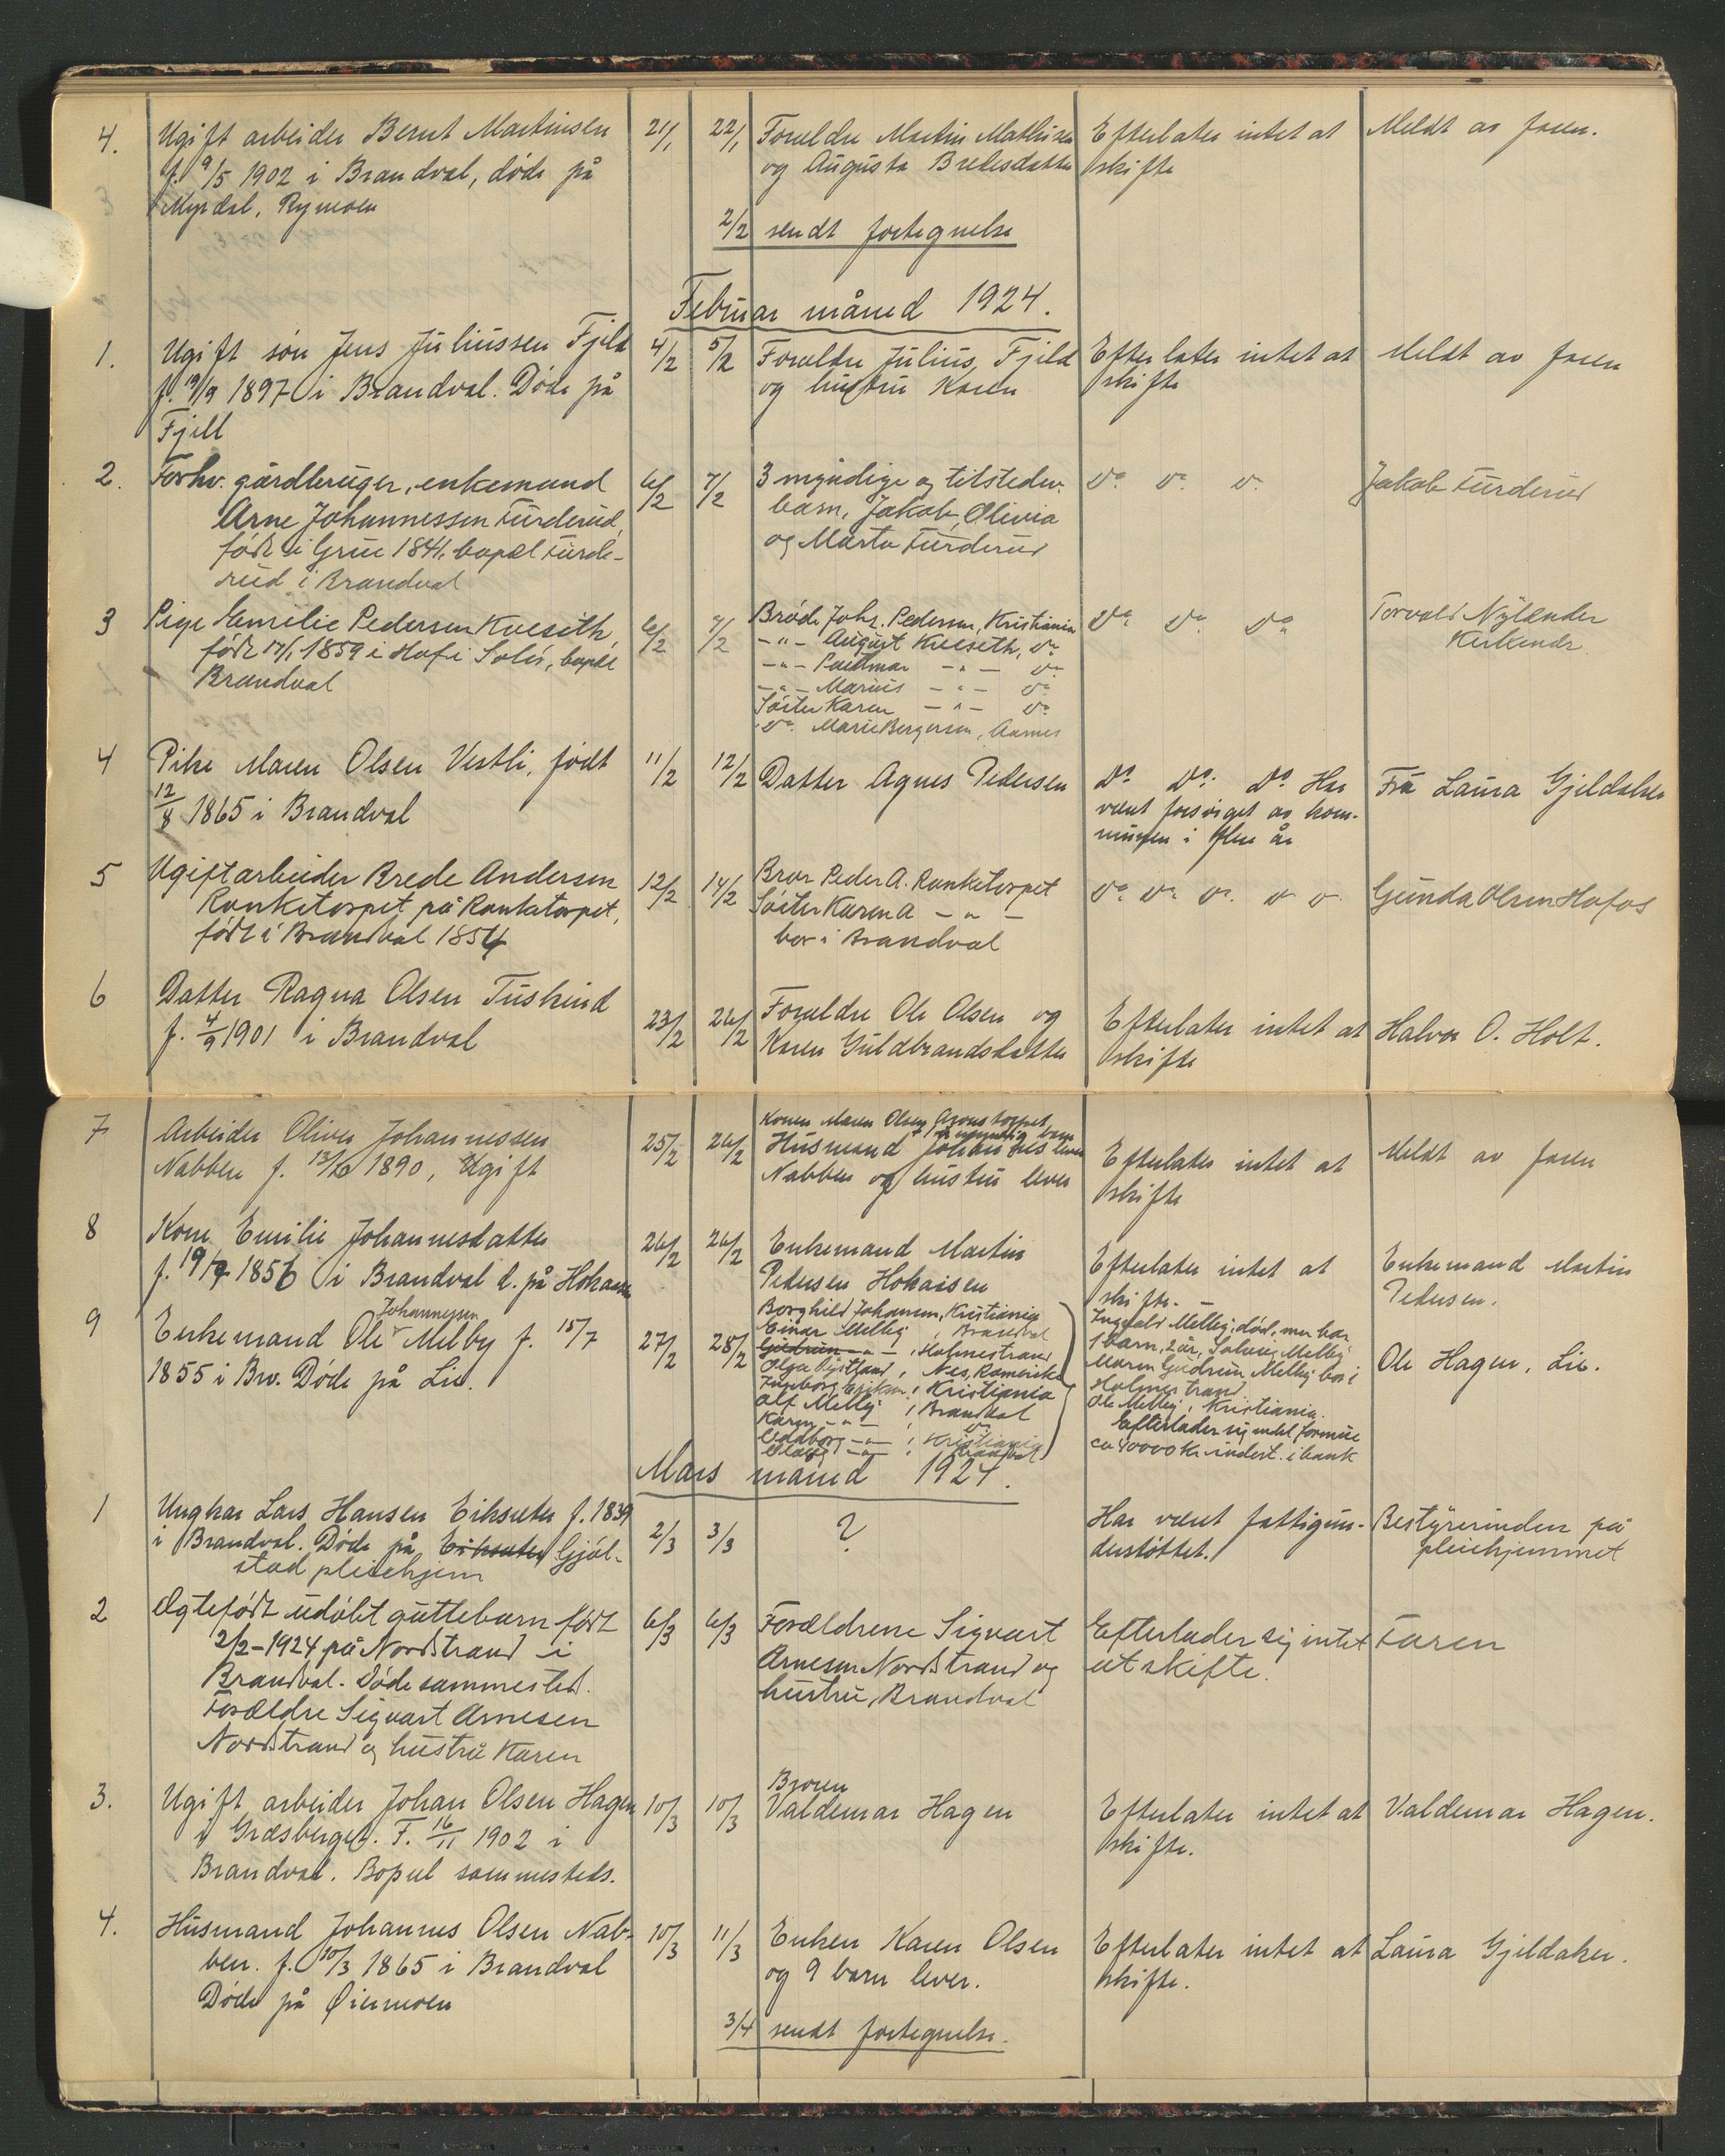 4. Ugift arbeider Bernt Martinsen 21/1 22/1 Foreldre Martin Mathisen Efterlater intet at Meldt av faren.
f. 9/5 1902 i Brandval, døde på og Augusta Bredesdatter skifte
Myrdal, Rymoen
2/2 sendt fortegnelse
Februar måned 1924.
1. Ugift søn Jens Juliussen Fjeld 4/2 5/2 Foreldre Julius Fjeld Efterlater intet at Meldt av faren
f. 19/9 1897 i Brandval. Døde på og hustru Karen skifte
Fjell
2. Forhv. gårdbruger, enkemand 6/2 7/2 3 myndige og tilstedev. do. do. do. Jakob Furderud
Arne Johannessen Furderud, barn, Jakob, Olivia
født i Grue 1841, bopæl Furde- og Marta Furderud
rud i Brandval
3 Pige Emilie Pedersen Kveseth, 6/2 7/2 Broder Johs. Pedersen, Kristiania do. do. do. Torvald Nylænder
født 17/1 1859 i Hof i Solør, bopæl -"- August Kveseth, do. Kirkenær
Brandval -"- Paulmar -"- do.
-"- Marius -"- do.
Søster Karen -"- do.
do. Marie Bergersen, Aarnes
4 Pike Maren Olsen Vestli, født 11/2 12/2 Datter Agnes Pedersen do. do. do. Har Fru Laura Gjeldaker
12/8 1865 i Brandval været forsørget av kom-
munen i flere år
5 Ugift arbeider Brede Andersen 12/2 14/2 Bror Peder A. Ranketorpet do. do. do. do. do. Gunda Olsen Hofos
Ranketorpet på Ranketorpet, Søster Karen A -"-
født i Brandval 1854 bor i Brandval
6 Datter Ragna Olsen Tuskind 23/2 26/2 Foreldre Ole Olsen og Efterlater intet at Halvor O. Holt.
f. 4/9 1901 i Brandval Karen Guldbrandsdatter skifte
7 Arbeider Oliver Johannessen 25/2 26/2 Konen Maren Olsen
Nabben f. 13/10 1890, Ugift Husmand Johannes Efterlater intet at Meldt av faren
Nabben og hustru lever skifte
8 Kone Emilie Johannesdatter 26/2 26/2 Enkemand Martin Efterlater intet at Enkemand Martin
f. 19/7 1856 i Brandval d. på Hokaasen Pedersen Hokaasen skifte. Pedersen.
9 Enkemand Ole Johannessen Melby f. 15/7 27/2 28/2 Borghild Johansen, Kristiania Ingvald Melby, død, men har Ole Hagen, Lie.
1855 i Brv. Døde på Lie. Einar Melby, Brandval 1 barn, 2 år, Solveig Melby
Gudrun -"-, Holmestrand Maren Gudrun Melby bor i
Olga, Nes, Romerike Holmestrand
Ingeborg, Kristiania Ole Melby, Kristiania.
Alf Melby, Brandval Efterlader sig endel formue
Karen -"-, do. ca 40000 kr. indest. i bank
Valborg -"-, Kristiania
Olaug -"-, Brandval
Mars måned 1924.
1 Ungkar Lars Hansen Eiksæter f. 1839 2/3 3/3 ? Har været fattigun- Bestyrerinden på
i Brandval. Døde på Eiksæter Gjøl- derstøttet. pleiehjemmet
stad pleiehjem
2 Ægtefødt udøbt guttebarn født 6/3 6/3 Forældrene Sigvart Efterlader sig intet Faren
2/2-1924 på Nordstrand i Arnesen Nordstrand og at skifte.
Brandval. Døde sammested. hustru, Brandval
Forældre Sigvart Arnesen
Nordstrand og hustru Karen
3. Ugift arbeider Johan Olsen Hagen 10/3 10/3 Broren Valdemar Hagen Efterlater intet at Valdemar Hagen.
i Græsberget. F. 16/11 1902 i skifte.
Brandval. Bopæl sammesteds.
4. Husmand Johannes Olsen Nab- 10/3 11/3 Enken Karen Olsen Efterlater intet at Laura Gjeldaker.
ben. f. 10/3 1865 i Brandval og 9 barn lever. skifte.
Døde på Øiermoen
3/4 sendt fortegnelse.